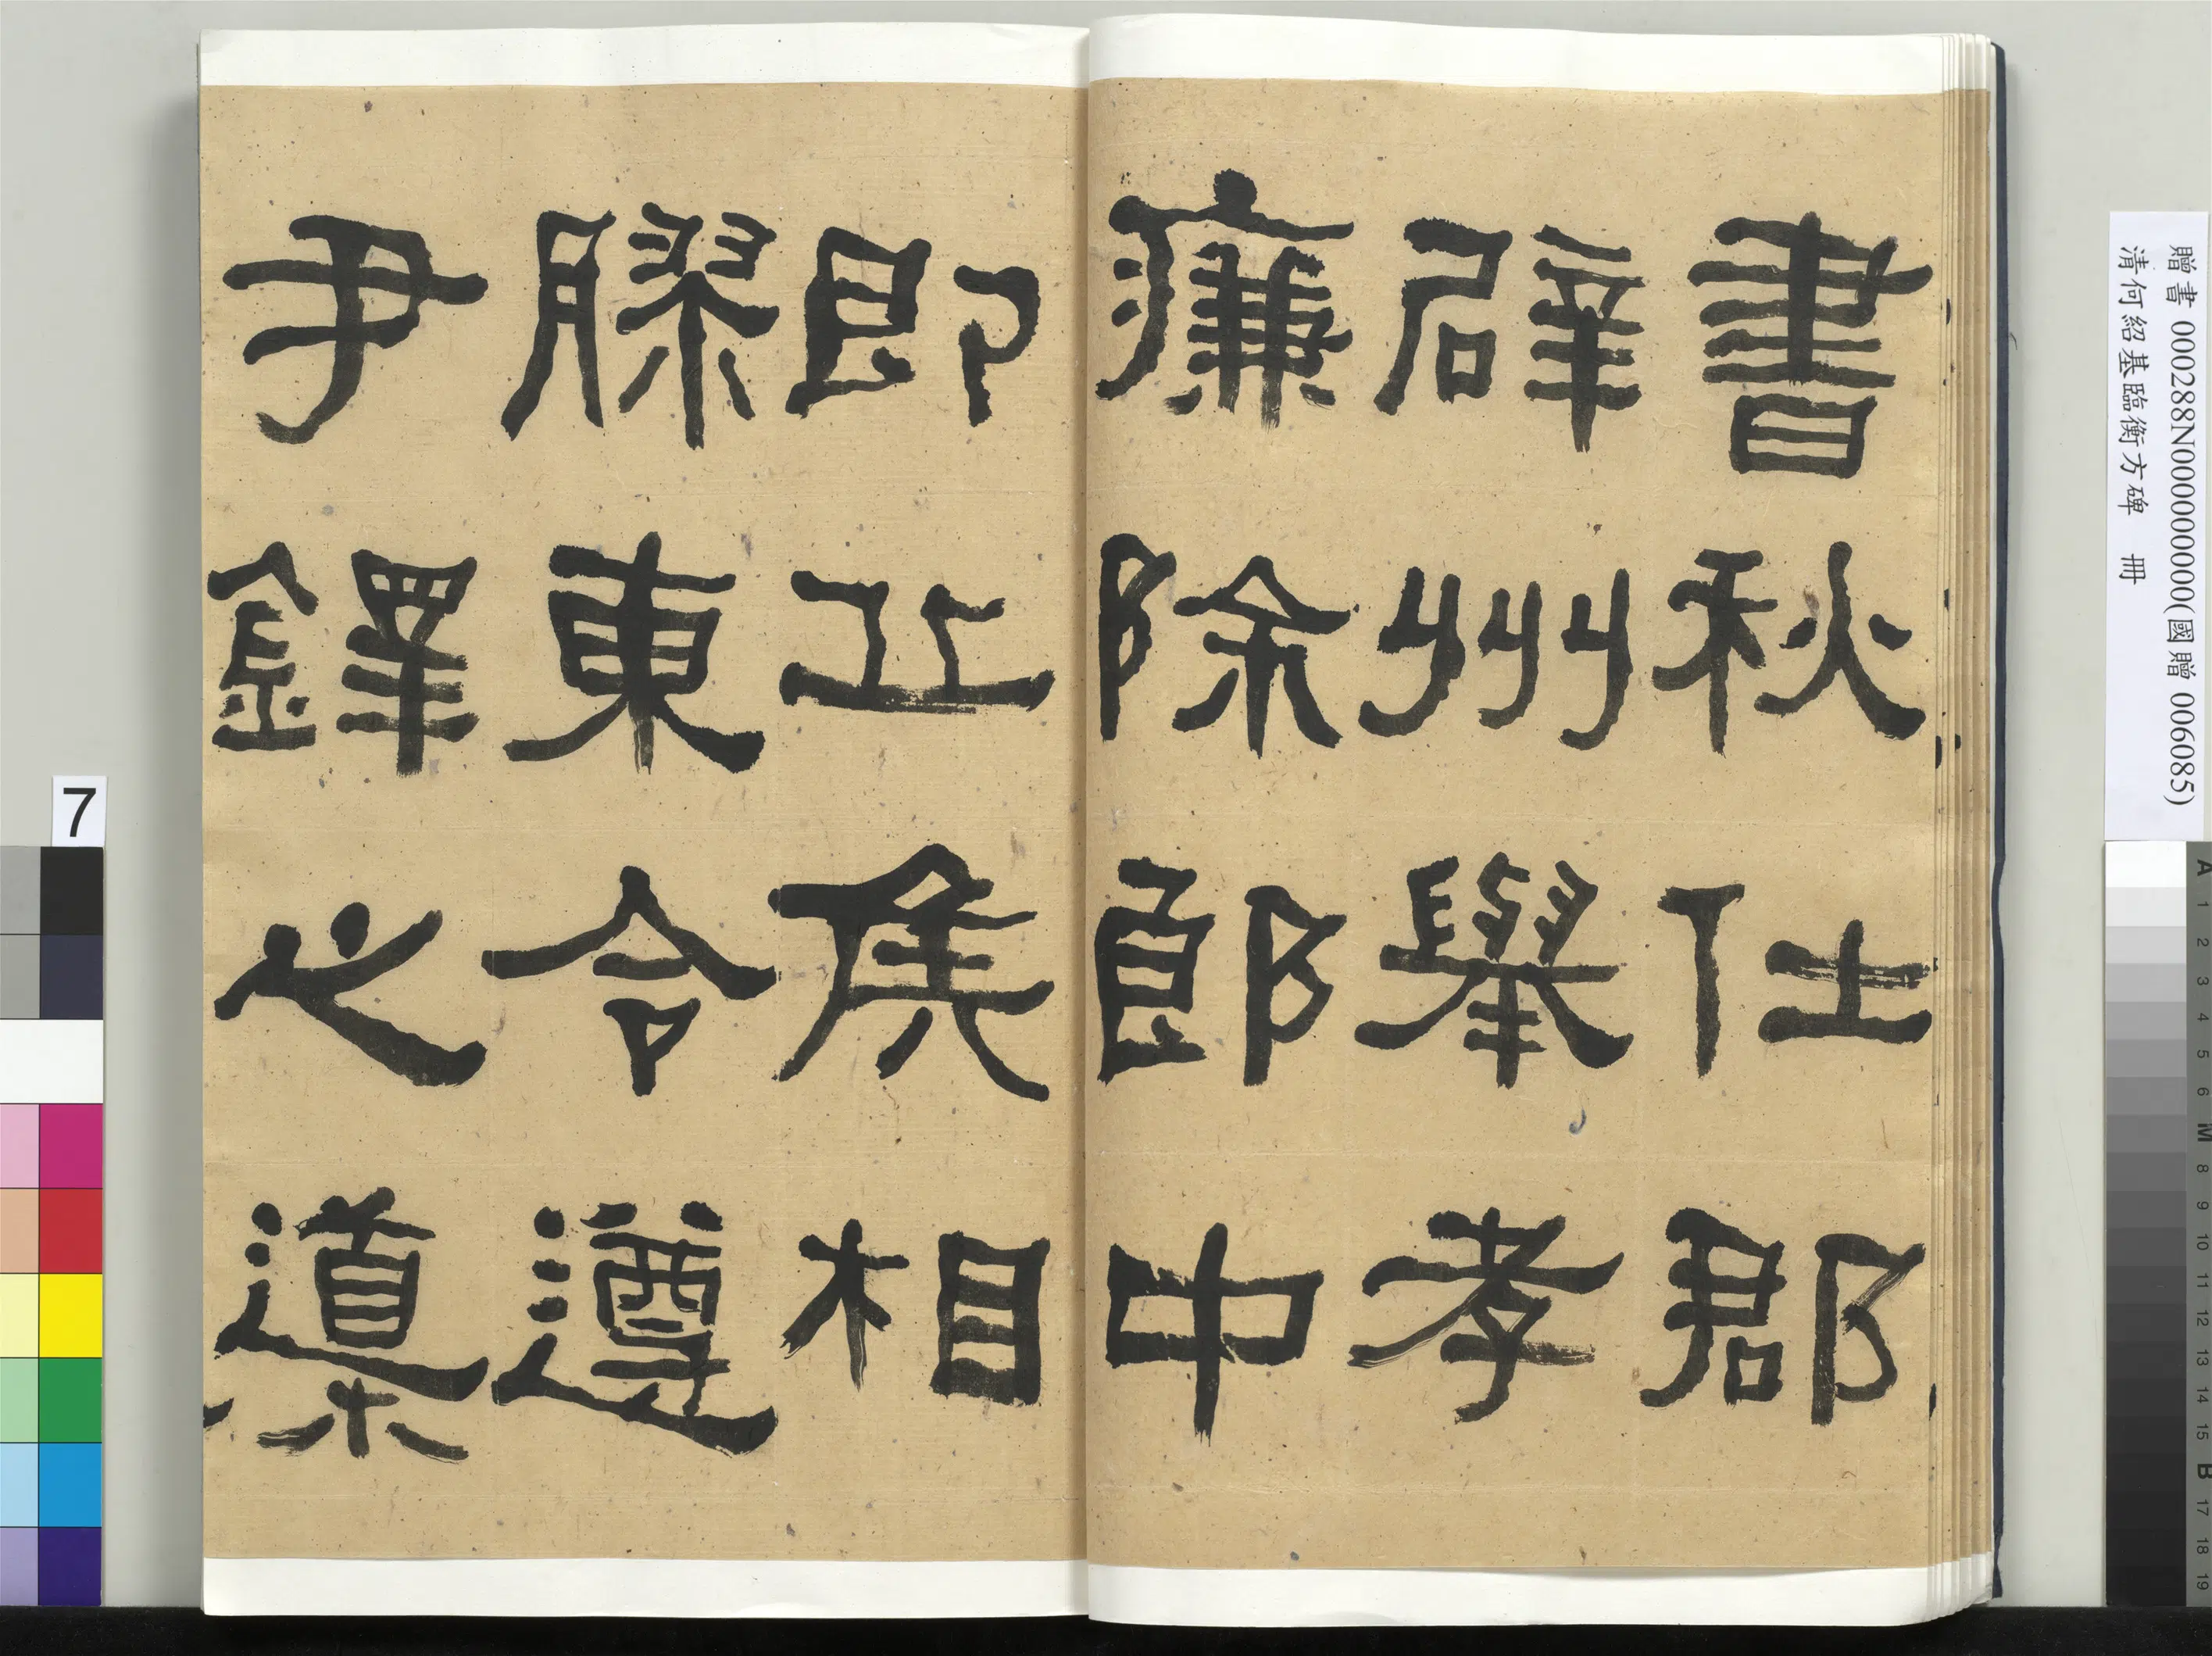 書秋仕郡
辟州舉孝
廉除郎中
即丘侯相
膠東令遵
尹鐸之導
贈書 000288N000000000(國贈 006085)
清何紹基臨衡方碑 冊
7
A 1 2 3 4 5 6 M 8 9 10 11 12 13 14 15 B 17 18 19